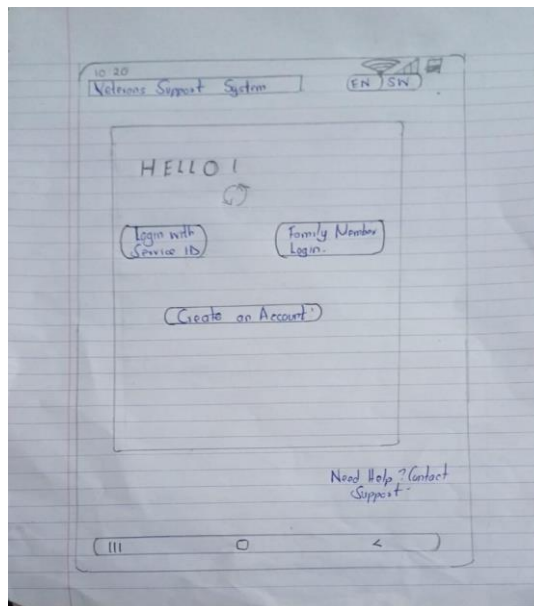 10 20
Veterans Support System
EN SW
HELLO!
Login with
Service ID
Family Member
Login.
Create an Account
Need Help? Contact
Support